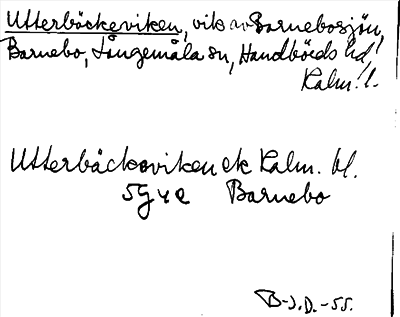 Utterbäckeviken, vik av Barnebosjön,
Barnebo, Långemåla sn, Handbörds hd,
Kalm. l.
Utterbäcksviken ek Kalm. bl.
5G 4e Barnebo
B-J.D.-55.